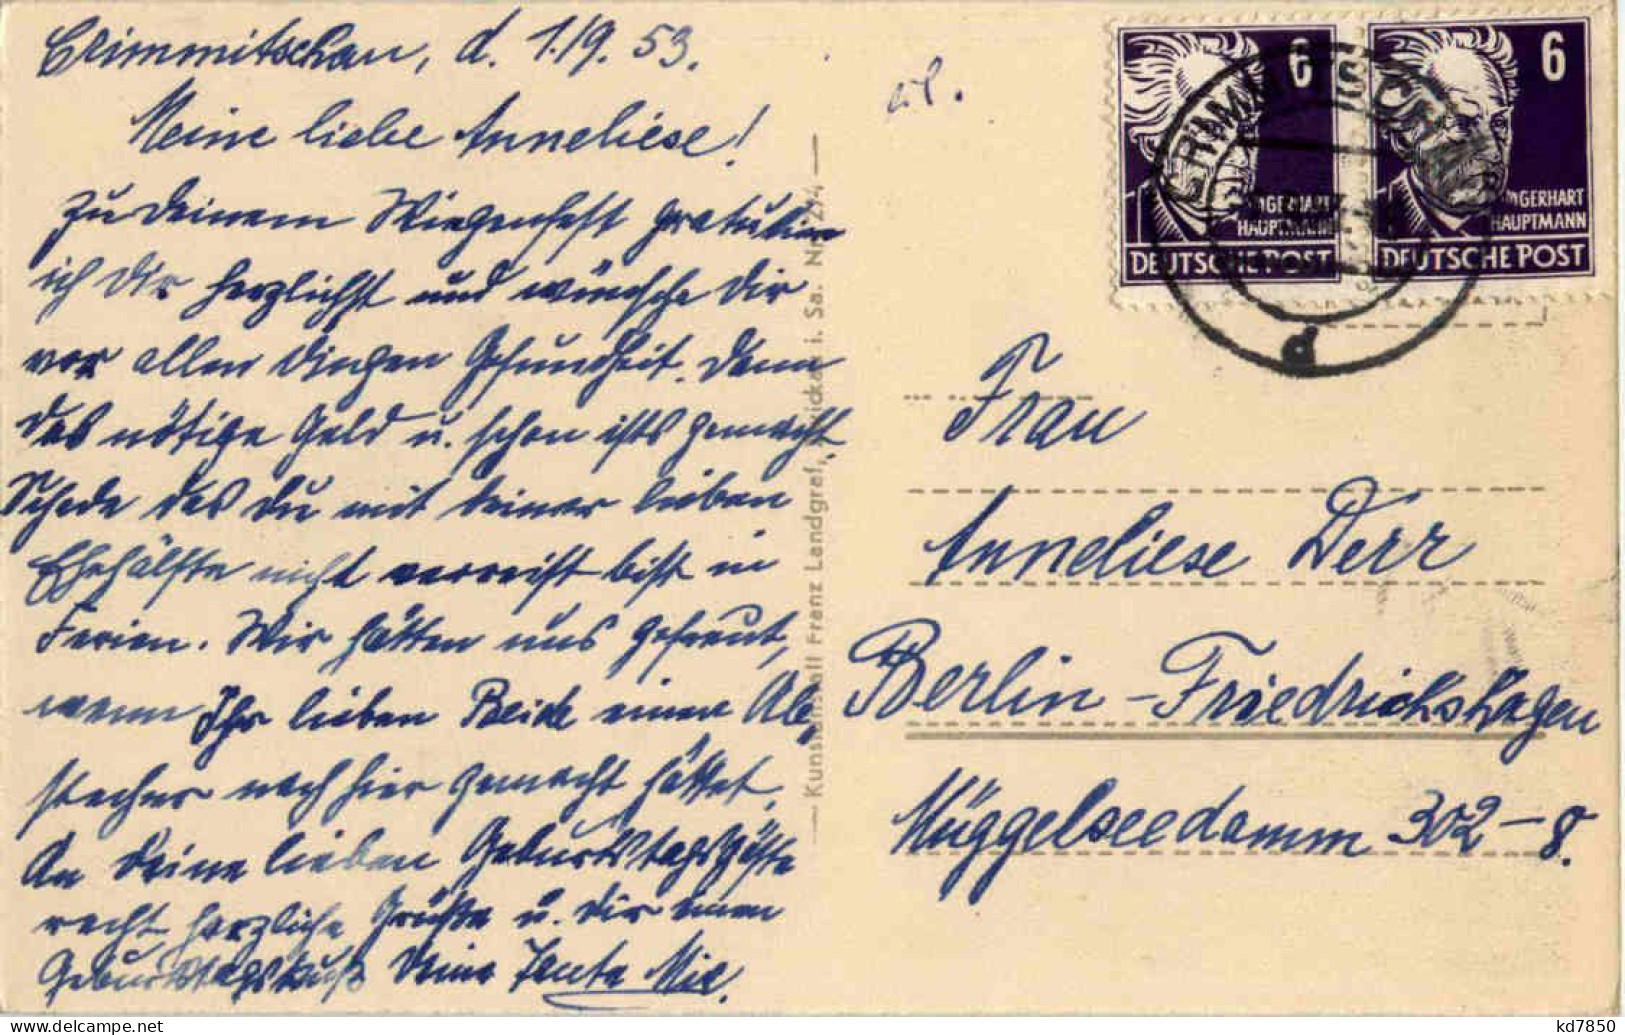 Crimmitschau, d. 1./9. 53.
Meine liebe Anneliese!
Zu Deinem Wiegenfest gratuliere
ich Dir herzlichst und wünsche Dir
vor allen Dingen Gesundheit. Dann
das nötige Geld u. schon ists gemacht.
Schade das Du mit Deiner lieben
Ehehälfte nicht verreist bist in
Ferien. Wir hätten uns gefreut,
wenn Ihr lieben Beide einen Ab,
stecher nach hier gemacht hättet.
An Deine lieben Geburtstagsgäste
recht herzliche Grüße u. Dir einen
Geburtstagskuß Deine Tante Mie.
Kunstanstalt Franz Landgraf, Zwickau i. Sa.
6
GERHART
HAUPTMANN
DEUTSCHE POST
6
GERHART
HAUPTMANN
DEUTSCHE POST
CRIMMITSCHAU
d
Frau
Anneliese Derr
Berlin-Friedrichshagen
Müggelseedamm 302-8.
kd7850